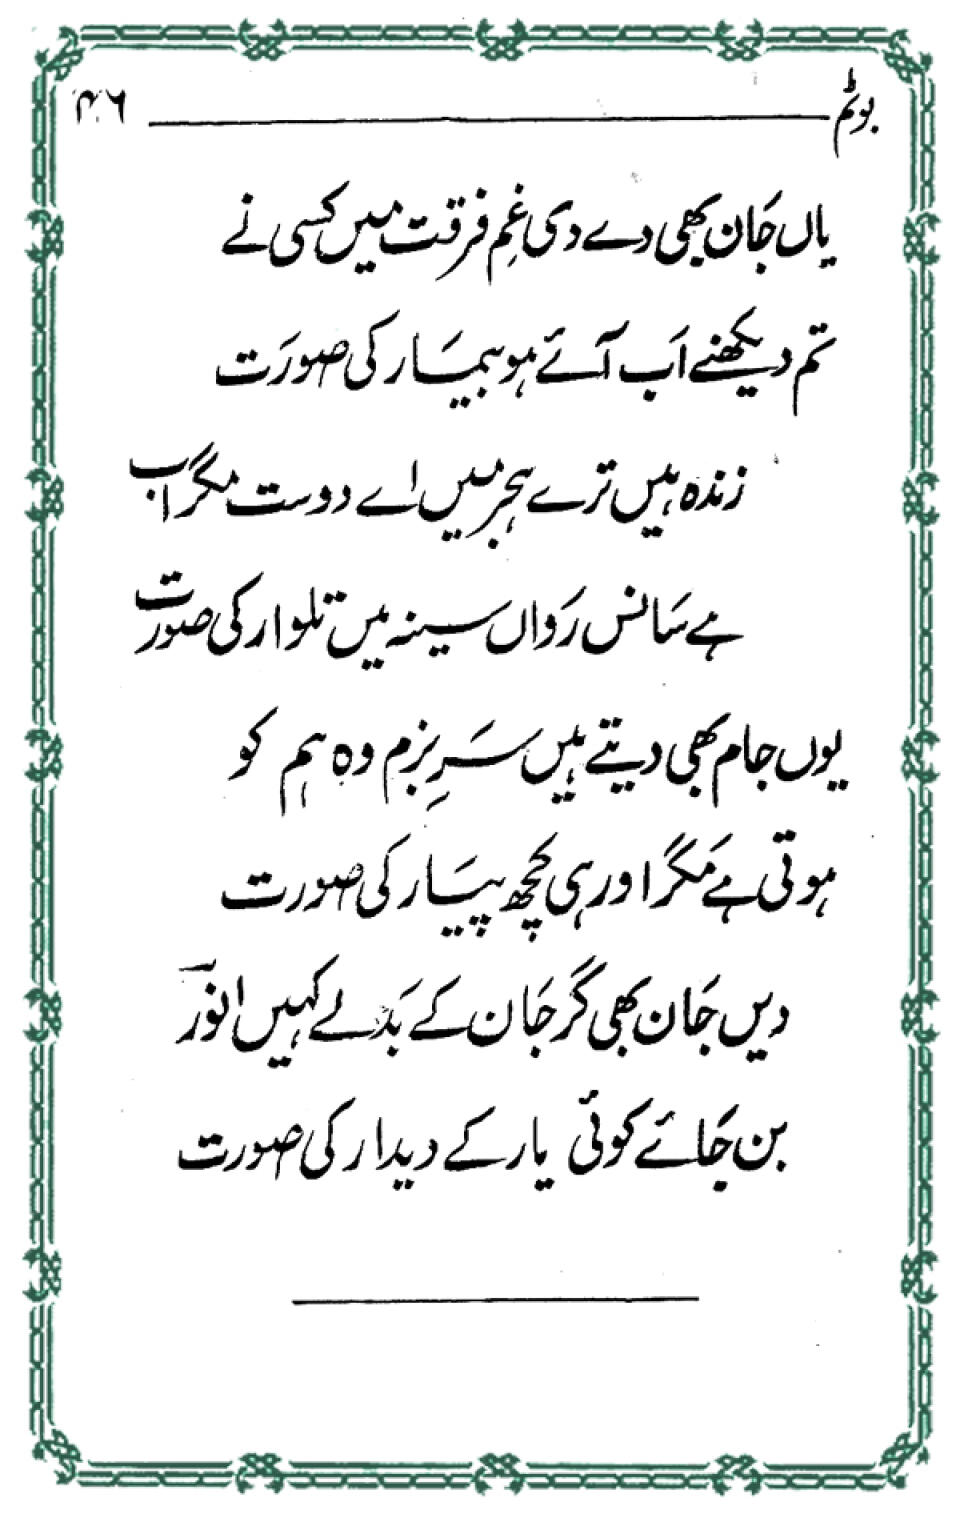 بوٹم ۴۶
یاں جان بھی دے دی غمِ فرقت میں کسی نے
تم دیکھنے اب آئے ہو بیمار کی صورت
زندہ ہیں ترے ہجر میں اے دوست مگر اب
ہے سانس رواں سینہ میں تلوار کی صورت
یوں جام بھی دیتے ہیں سرِ بزم وہ ہم کو
ہوتی ہے مگر اور ہی کچھ پیار کی صورت
دیں جان بھی گر جان کے بدلے کہیں انورؔ
بن جائے کوئی یار کے دیدار کی صورت